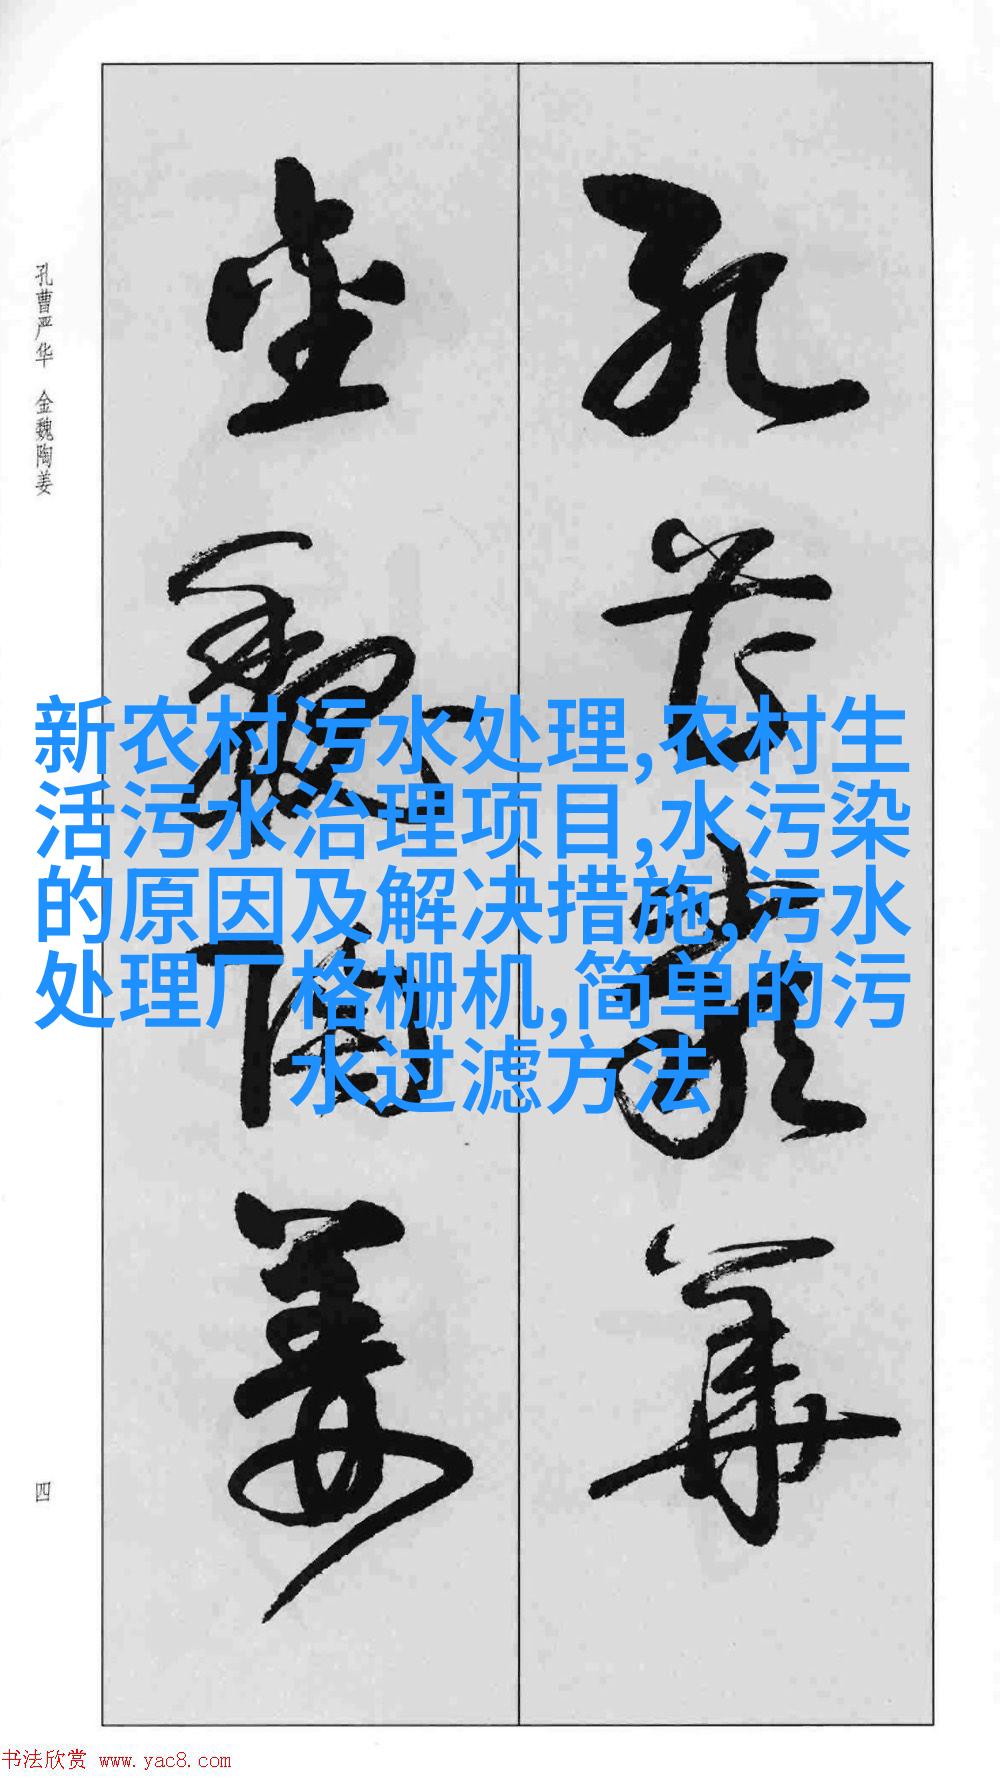 孔曹严华
金魏陶姜
孔曹严华 金魏陶姜
新农村污水处理,农村生
活污水治理项目,水污染
的原因及解决措施,污水
处理厂格栅机,简单的污
水过滤方法
四
书法欣赏 www.yac8.com